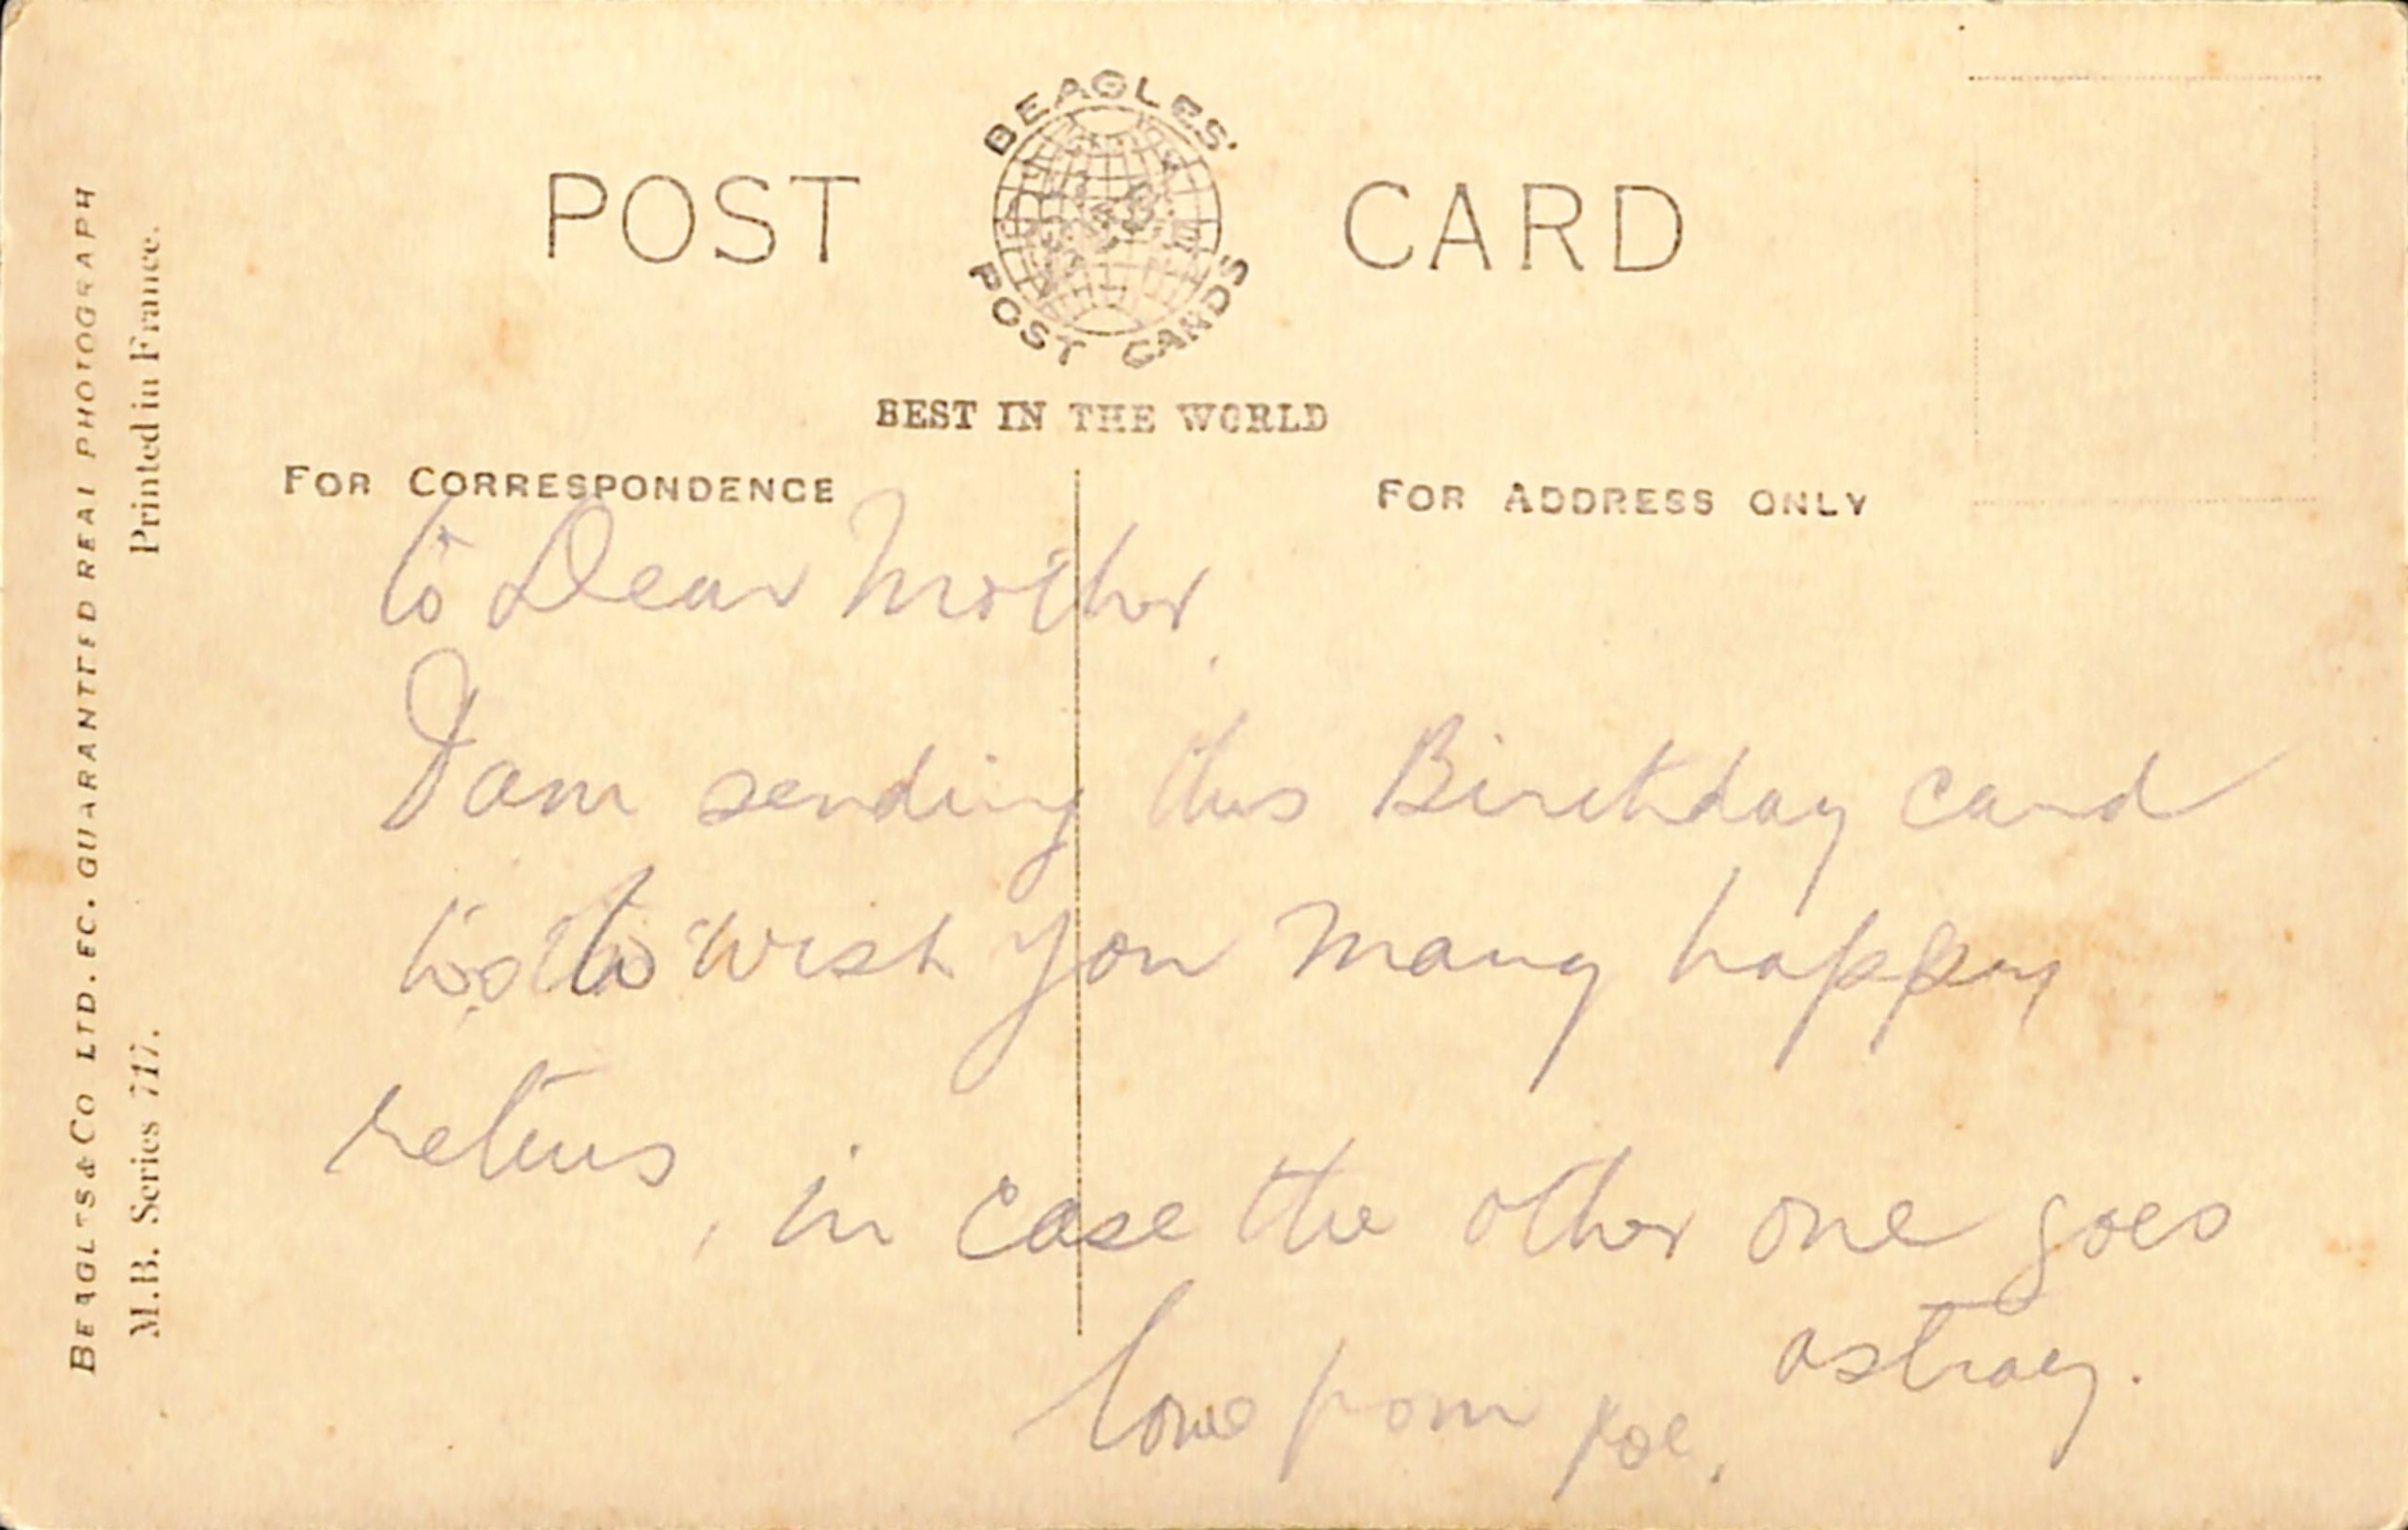 BEAGLES'
POST CARD
POST CARDS
BEST IN THE WORLD
FOR CORRESPONDENCE
FOR ADDRESS ONLY
to Dear Mother
I am sending this Birthday card
to wish you many happy
returns, in case the other one goes
astray.
love from Joe.
BEAGLES & CO LTD. EC. GUARANTEED REAL PHOTOGRAPH
M.B. Series 717. Printed in France.